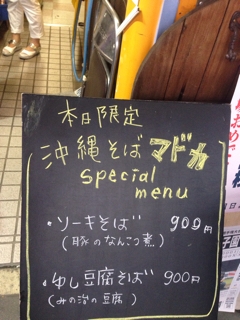 本日限定
沖縄そばマドカ
special
menu
・ソーキそば 900円
(豚のなんこつ煮)
・ゆし豆腐そば 900円
(みの治の豆腐)